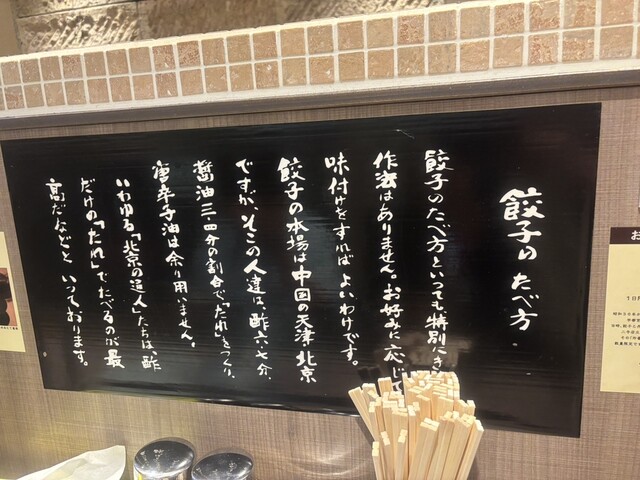 餃子のたべ方
餃子のたべ方といっても特別にき
作法はありません。お好みに応じて
味付けをすればよいわけです。
餃子の本場は中国の天津、北京
ですが、そこの人達は、酢六、七分、
醤油三、四分の割合で「たれ」をつくり、
唐辛子油は余り用いません。
いわゆる「北京の通人」たちは、酢
だけの「たれ」でたべるのが最
高だなどといっております。